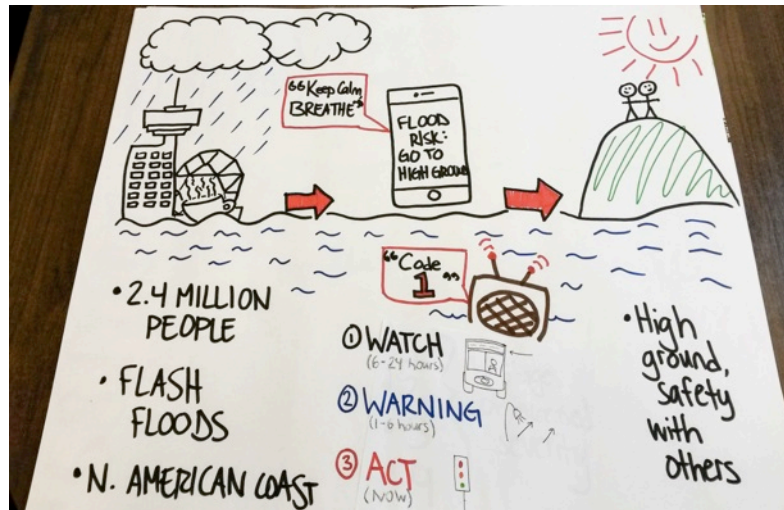 "Keep Calm,
BREATHE"
FLOOD
RISK:
GO TO
HIGH GROUND
"Code
1"
• 2.4 MILLION
PEOPLE
• FLASH
FLOODS
• N. AMERICAN COAST
① WATCH
(6-24 hours)
② WARNING
(1-6 hours)
③ ACT
(NOW)
• High
ground,
safety
with
others